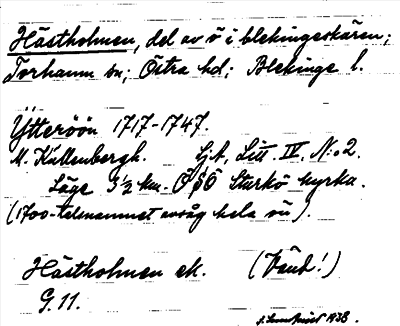 Hästholmen, del av ö i blekingeskären;
Torhamn sn; Östra hd; Blekinge l.
Ytteröön 1717-1747.
M. Kallenbergh. Lj.A, Litt. IV. N:o 2.
Läge 3 1/2 km. ÖSÖ Sturkö kyrka.
(1700-talsnamnet avsåg hela ön).
Hästholmen ek. (Vänd!)
G. 11.
1938.